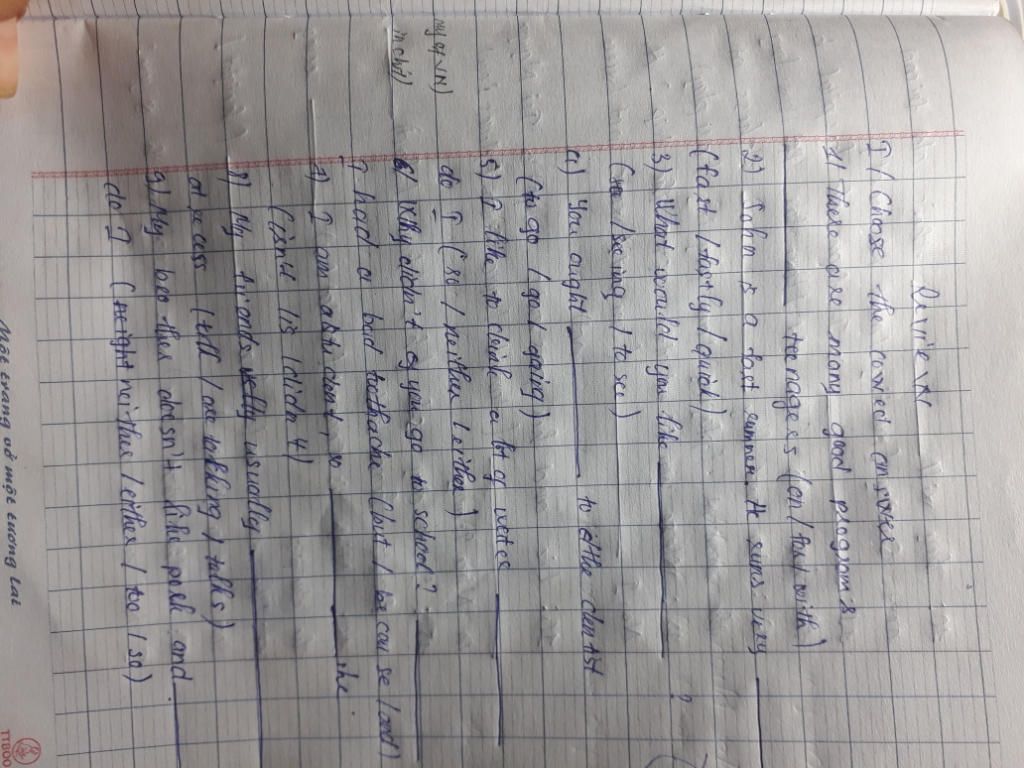 Review
I / Choose the correct answer
1) there are many good programs
______ teenagers (on / for / with)
2) John is a fast swimmer. He swims very ______
(fast / fastly / quick)
3) What would you like ______ ?
(see / seeing / to see)
4) You ought ______ to the dentist
(to go / go / going)
5) I like to drink a lot of water ______
do I (so / neither / either)
6) Why didn't you go to school? ______
I had a bad toothache (but / because / and)
7) I am a student, so ______ she
(isn't / is / didn't)
8) My friends usually ______
at recess (talk / are talking / talks)
9) My brother doesn't like pork and ______
do I (neither / either / too / so)
Một trang vở một tương lai
TTBOO